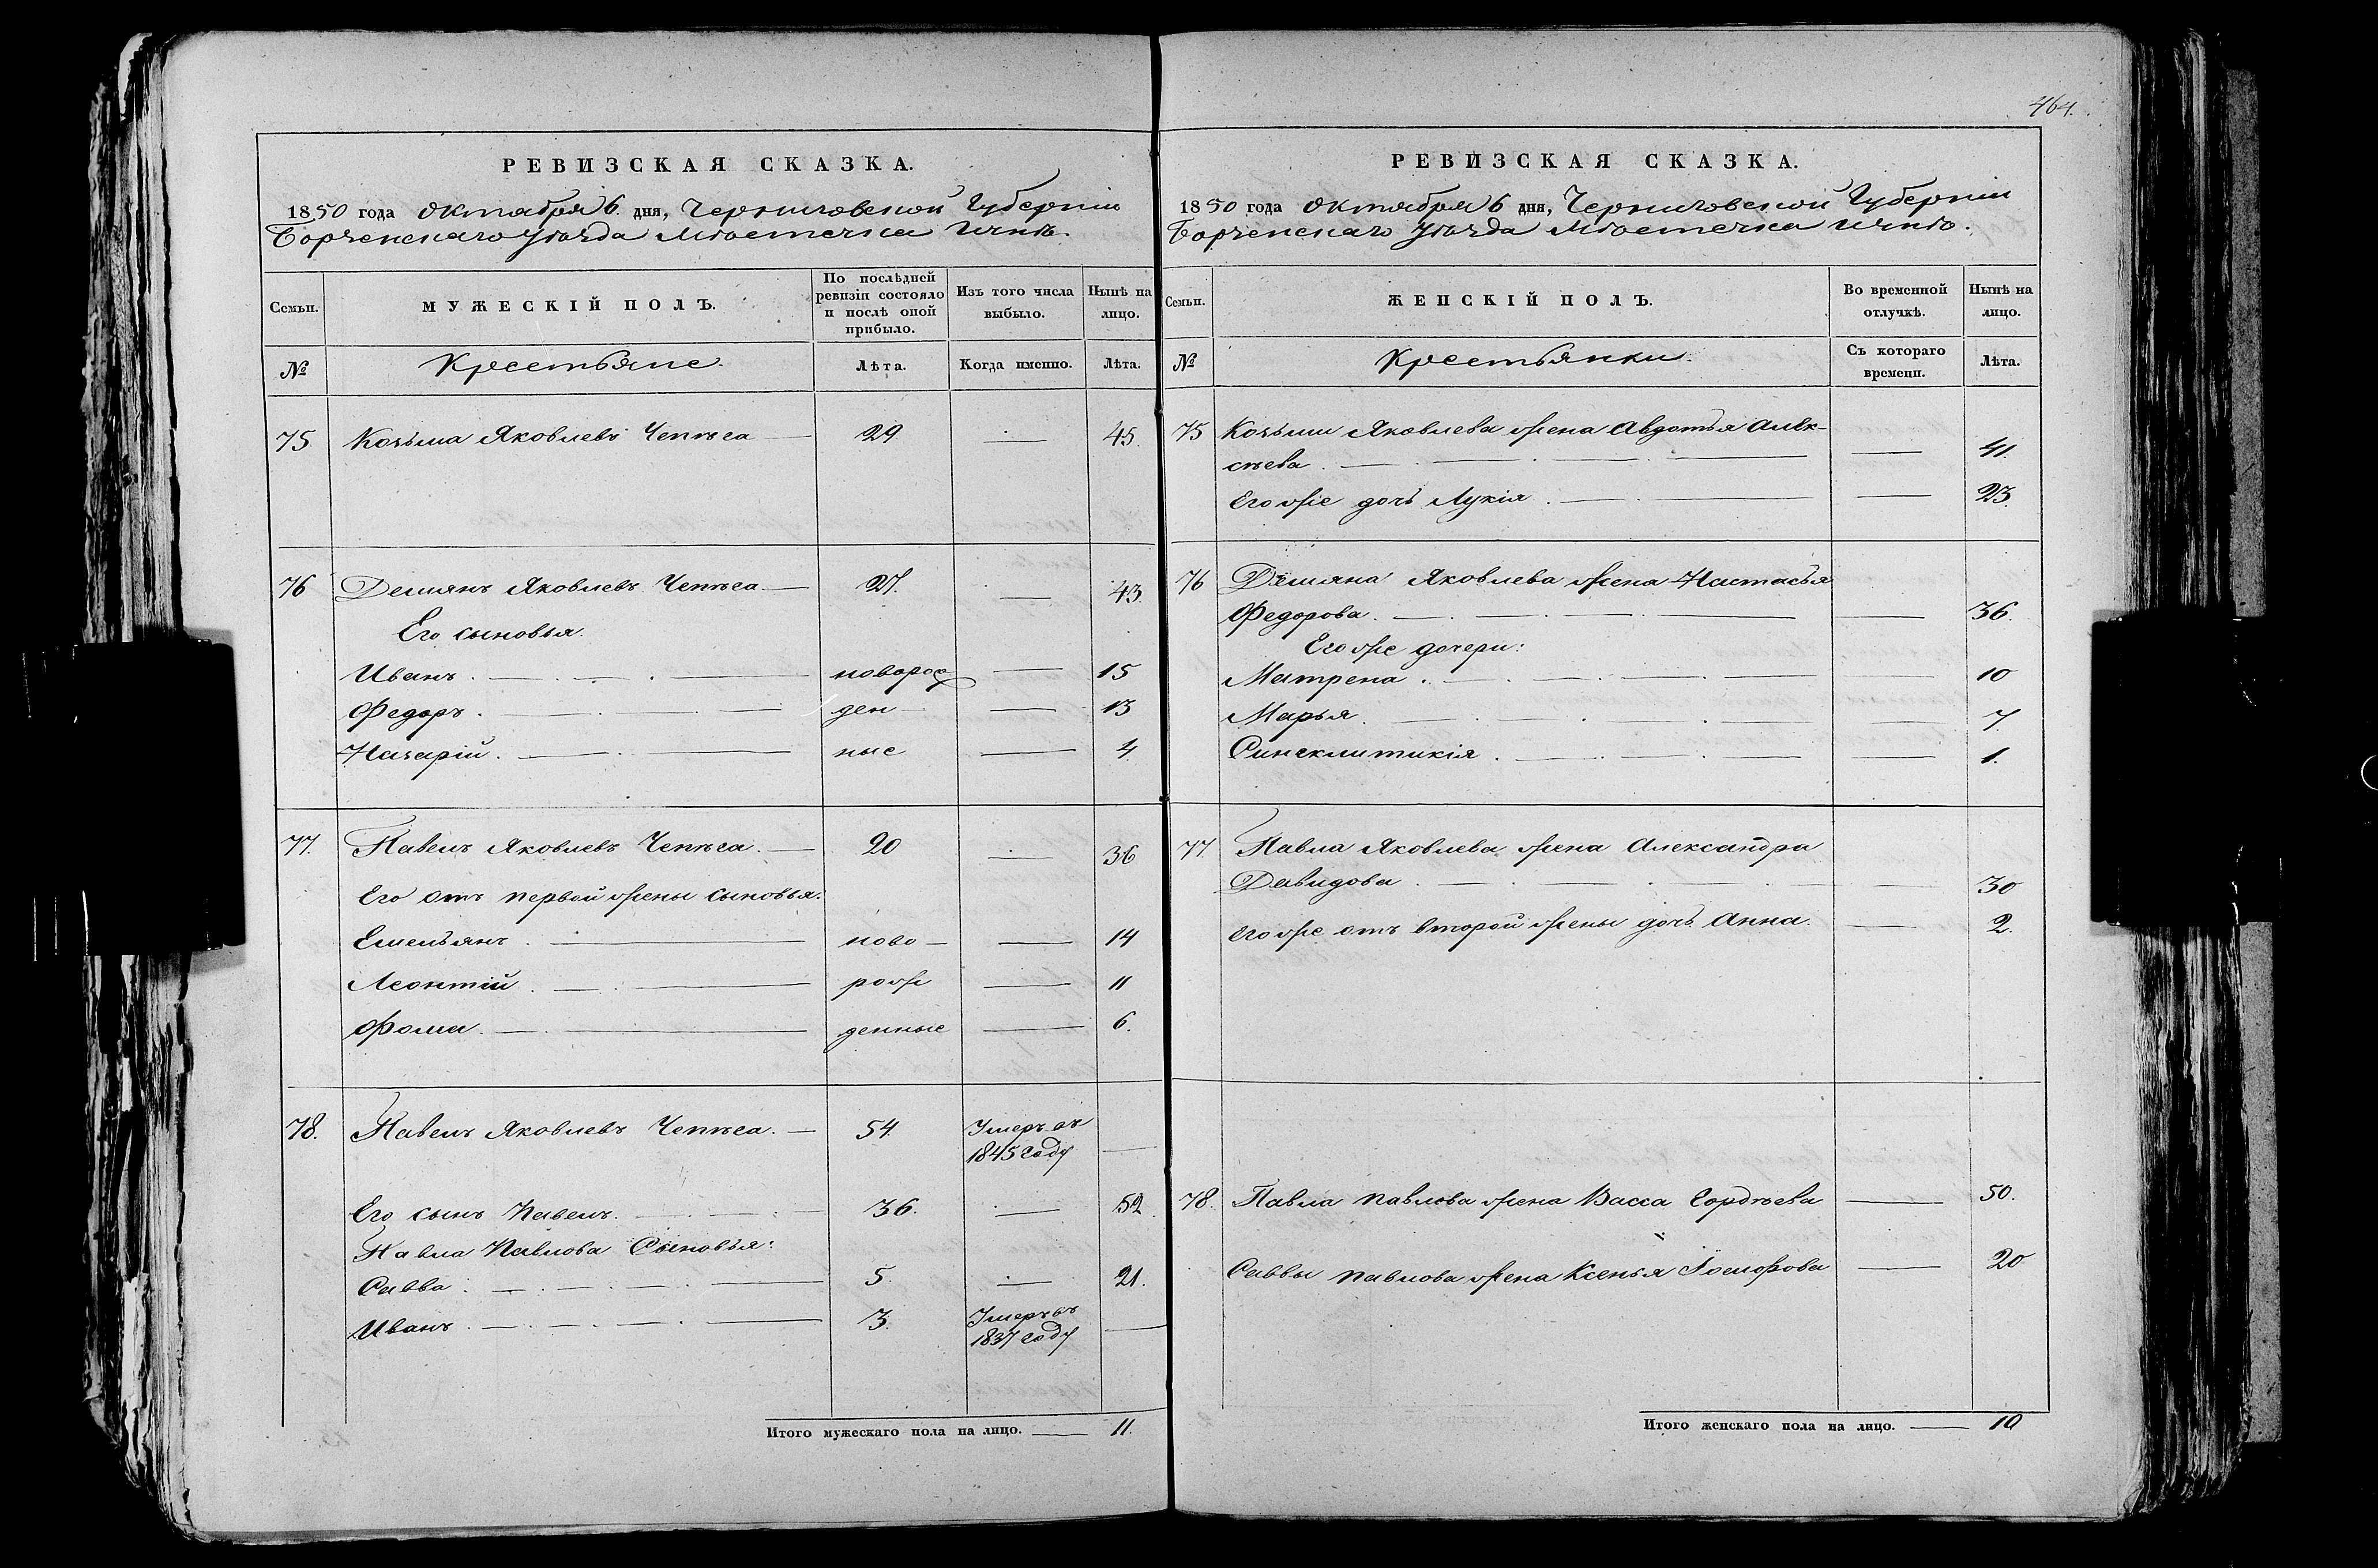 464.
РЕВИЗСКАЯ СКАЗКА.
1850 года Октября 6. дня, Черниговской Губерніи
Борзенскаго Уѣзда Мѣстечка Ични.
Семьи.
МУЖЕСКІЙ ПОЛЪ.
По послѣдней ревизіи состояло и послѣ оной прибыло.
Изъ того числа выбыло.
Нынѣ на лицо.
№
Крестьяне.
Лѣта.
Когда именно.
Лѣта.
75 Козьма Яковлевъ Чепѣга — 29 — 45.
76 Демянъ Яковлевъ Чепѣга — 27. — 43.
Его сыновья.
Иванъ. — новорож — 15
Федоръ. — ден — 13
Назарій. — ные — 4.
77. Павелъ Яковлевъ Чепѣга. — 20 — 36
Его отъ первой жены сыновья:
Емельянъ. — ново — — 14
Леонтій. — рож — 11
Фома. — денные — 6.
78. Павелъ Яковлевъ Чепѣга. — 54. Умеръ въ —
1845 году
Его сынъ Павелъ. — 36. — 52.
Павла Павлова Сыновья:
Савва. — 5. — 21.
Иванъ. — 3. Умеръ въ —
1837 году
Итого мужескаго пола на лицо. — 11.
РЕВИЗСКАЯ СКАЗКА.
1850 года Октября 6 дня, Черниговской Губерніи
Борзенскаго Уѣзда Мѣстечка Ични.
Семьи.
ЖЕНСКІЙ ПОЛЪ.
Во временной отлучкѣ.
Нынѣ на лицо.
№
Крестьянки.
Съ котораго времени.
Лѣта.
75 Козьми Яковлева жена Авдотья Алек-
сѣева. — — 41.
Его же дочь Лукія. — — 23.
76 Демяна Яковлева жена Настасья
Федорова. — — 36.
Его же дочери:
Матрена. — — 10
Марья. — — 7.
Синклитикія. — — 1.
77. Павла Яковлева жена Александра
Давидова. — — 30
Его же отъ второй жены дочь Анна. — 2.
78. Павла Павлова жена Васса Гордѣева — 50.
Саввы Павлова жена Ксенья — 20
Итого женскаго пола на лицо. — 10